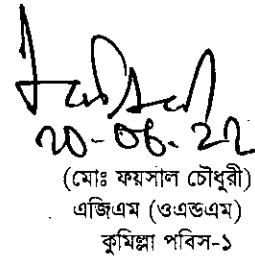 20-06-22
(মোঃ ফয়সাল চৌধুরী)
এজিএম (ওএন্ডএম)
কুমিল্লা পবিস-১